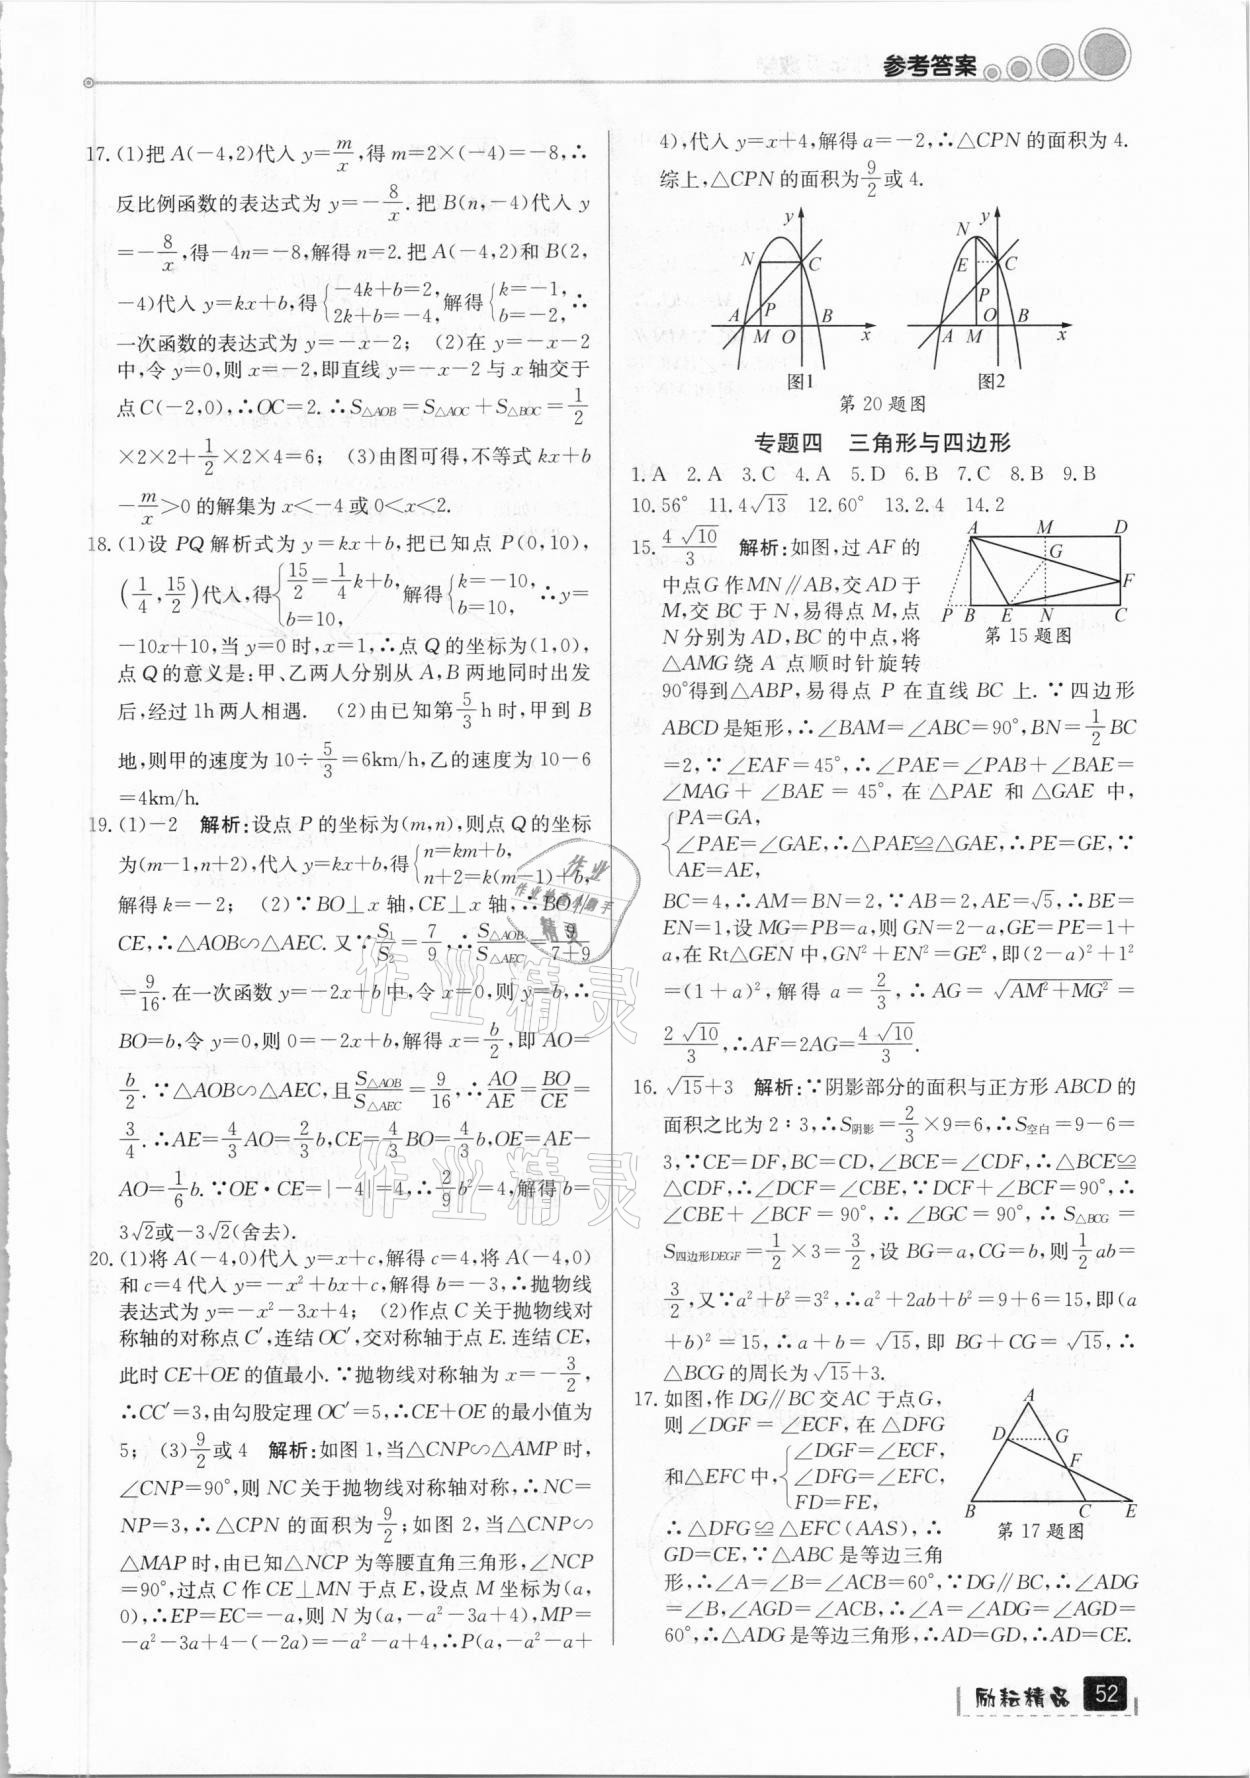 参考答案
17. (1)把 A(-4,2)代入 y=m/x,得 m=2×(-4)=-8,∴
反比例函数的表达式为 y=-8/x.把 B(n,-4)代入 y
=-8/x,得-4n=-8,解得 n=2.把 A(-4,2)和 B(2,
-4)代入 y=kx+b,得{-4k+b=2, 2k+b=-4,解得{k=-1, b=-2,∴
一次函数的表达式为 y=-x-2; (2)在 y=-x-2
中,令 y=0,则 x=-2,即直线 y=-x-2 与 x 轴交于
点 C(-2,0),∴OC=2.∴S△AOB=S△AOC+S△BOC=1/2
×2×2+1/2×2×4=6; (3)由图可得,不等式 kx+b
-m/x>0 的解集为 x<-4 或 0<x<2.
18. (1)设 PQ 解析式为 y=kx+b,把已知点 P(0,10),
(1/4,15/2)代入,得{15/2=1/4k+b, b=10,解得{k=-10, b=10,∴y=
-10x+10,当 y=0 时,x=1,∴点 Q 的坐标为(1,0),
点 Q 的意义是:甲、乙两人分别从 A,B 两地同时出发
后,经过 1h 两人相遇. (2)由已知第5/3h 时,甲到 B
地,则甲的速度为 10÷5/3=6km/h,乙的速度为 10-6
=4km/h.
19. (1)-2 解析:设点 P 的坐标为(m,n),则点 Q 的坐标
为(m-1,n+2),代入 y=kx+b,得{n=km+b, n+2=k(m-1)+b,
解得 k=-2; (2)∵BO⊥x 轴,CE⊥x 轴,∴BO∥
CE,∴△AOB∽△AEC.又∵S₁/S₂=7/9,∴S△AOB/S△AEC=9/7+9
=9/16.在一次函数 y=-2x+b 中,令 x=0,则 y=b,∴
BO=b,令 y=0,则 0=-2x+b,解得 x=b/2,即 AO=
b/2.∵△AOB∽△AEC,且S△AOB/S△AEC=9/16,∴AO/AE=BO/CE=
3/4.∴AE=4/3AO=2/3b,CE=4/3BO=4/3b,OE=AE-
AO=1/6b.∵OE·CE=|-4|=4,∴2/9b²=4,解得 b=
3√2或-3√2(舍去).
20. (1)将 A(-4,0)代入 y=x+c,解得 c=4,将 A(-4,0)
和 c=4 代入 y=-x²+bx+c,解得 b=-3,∴抛物线
表达式为 y=-x²-3x+4; (2)作点 C 关于抛物线对
称轴的对称点 C′,连结 OC′,交对称轴于点 E.连结 CE,
此时 CE+OE 的值最小.∵抛物线对称轴为 x=-3/2,
∴CC′=3,由勾股定理 OC′=5,∴CE+OE 的最小值为
5; (3)9/2或 4 解析:如图 1,当△CNP∽△AMP 时,
∠CNP=90°,则 NC 关于抛物线对称轴对称,∴NC=
NP=3,∴△CPN 的面积为9/2;如图 2,当△CNP∽
△MAP 时,由已知△NCP 为等腰直角三角形,∠NCP
=90°,过点 C 作 CE⊥MN 于点 E,设点 M 坐标为(a,
0),∴EP=EC=-a,则 N 为(a,-a²-3a+4),MP=
-a²-3a+4-(-2a)=-a²-a+4,∴P(a,-a²-a+
4),代入 y=x+4,解得 a=-2,∴△CPN 的面积为 4.
综上,△CPN 的面积为9/2或 4.
y N C P A M O B x
图1
y N E C P A M O B x
图2
第 20 题图
专题四 三角形与四边形
1. A 2. A 3. C 4. A 5. D 6. B 7. C 8. B 9. B
10. 56° 11. 4√13 12. 60° 13. 2.4 14. 2
15. 4√10/3 解析:如图,过 AF 的
中点 G 作 MN∥AB,交 AD 于
M,交 BC 于 N,易得点 M,点
N 分别为 AD,BC 的中点,将
△AMG 绕 A 点顺时针旋转
A M D G F P B E N C
第 15 题图
90°得到△ABP,易得点 P 在直线 BC 上.∵四边形
ABCD 是矩形,∴∠BAM=∠ABC=90°,BN=1/2BC
=2,∵∠EAF=45°,∴∠PAE=∠PAB+∠BAE=
∠MAG+∠BAE=45°,在△PAE 和△GAE 中,
{PA=GA,
∠PAE=∠GAE,∴△PAE≌△GAE,∴PE=GE,∵
AE=AE,
BC=4,∴AM=BN=2,∵AB=2,AE=√5,∴BE=
EN=1,设 MG=PB=a,则 GN=2-a,GE=PE=1+
a,在 Rt△GEN 中,GN²+EN²=GE²,即(2-a)²+1²
=(1+a)²,解得 a=2/3,∴AG=√AM²+MG²=
2√10/3,∴AF=2AG=4√10/3.
16. √15+3 解析:∵阴影部分的面积与正方形 ABCD 的
面积之比为 2∶3,∴S阴影=2/3×9=6,∴S空白=9-6=
3,∵CE=DF,BC=CD,∠BCE=∠CDF,∴△BCE≌
△CDF,∴∠DCF=∠CBE,∵DCF+∠BCF=90°,∴
∠CBE+∠BCF=90°,∴∠BGC=90°,∴S△BCG=
S四边形DEGF=1/2×3=3/2,设 BG=a,CG=b,则1/2ab=
3/2,又∵a²+b²=3²,∴a²+2ab+b²=9+6=15,即(a
+b)²=15,∴a+b=√15,即 BG+CG=√15,∴
△BCG 的周长为√15+3.
17. 如图,作 DG∥BC 交 AC 于点 G,
则∠DGF=∠ECF,在△DFG
和△EFC 中,{∠DGF=∠ECF, ∠DFG=∠EFC, FD=FE,
∴△DFG≌△EFC(AAS),∴
GD=CE,∵△ABC 是等边三角
A D G F B C E
第 17 题图
形,∴∠A=∠B=∠ACB=60°,∵DG∥BC,∴∠ADG
=∠B,∠AGD=∠ACB,∴∠A=∠ADG=∠AGD=
60°,∴△ADG 是等边三角形,∴AD=GD,∴AD=CE.
励耘精品 52
作业精灵
作业精灵